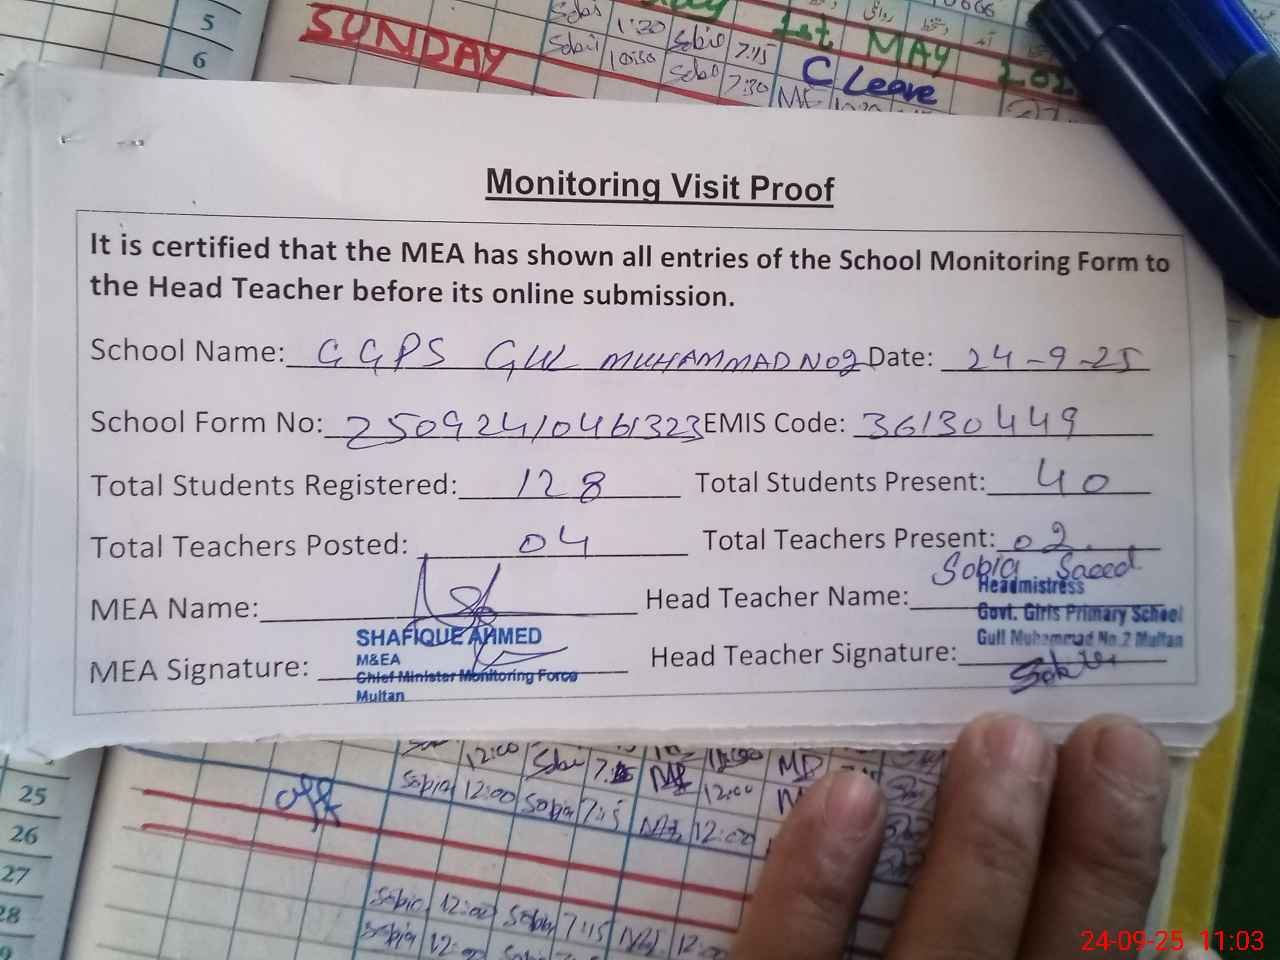 5
6
SUNDAY
1:30
7:15
1st MAY 202
10:30
7:30
C Leave
Monitoring Visit Proof
It is certified that the MEA has shown all entries of the School Monitoring Form to
the Head Teacher before its online submission.
School Name: GGPS GUL MUHAMMAD NO2 Date: 24-9-25
School Form No: 250924/0461323 EMIS Code: 36130449
Total Students Registered: 128 Total Students Present: 40
Total Teachers Posted: 04 Total Teachers Present: 02
MEA Name: Head Teacher Name: Sobia Saeed
Headmistress
Govt. Girls Primary School
Gull Muhammad No.2 Multan
SHAFIQUE AHMED
M&EA
Chief Minister Monitoring Force
Multan
MEA Signature: Head Teacher Signature:
12:00
25 Sobia 12:00 Sobia 7:15 12:00
off
26 12:00
27
28 Sobia 12:00 Sobia 7:15 12:00
Sobia 12:00
24-09-25 11:03